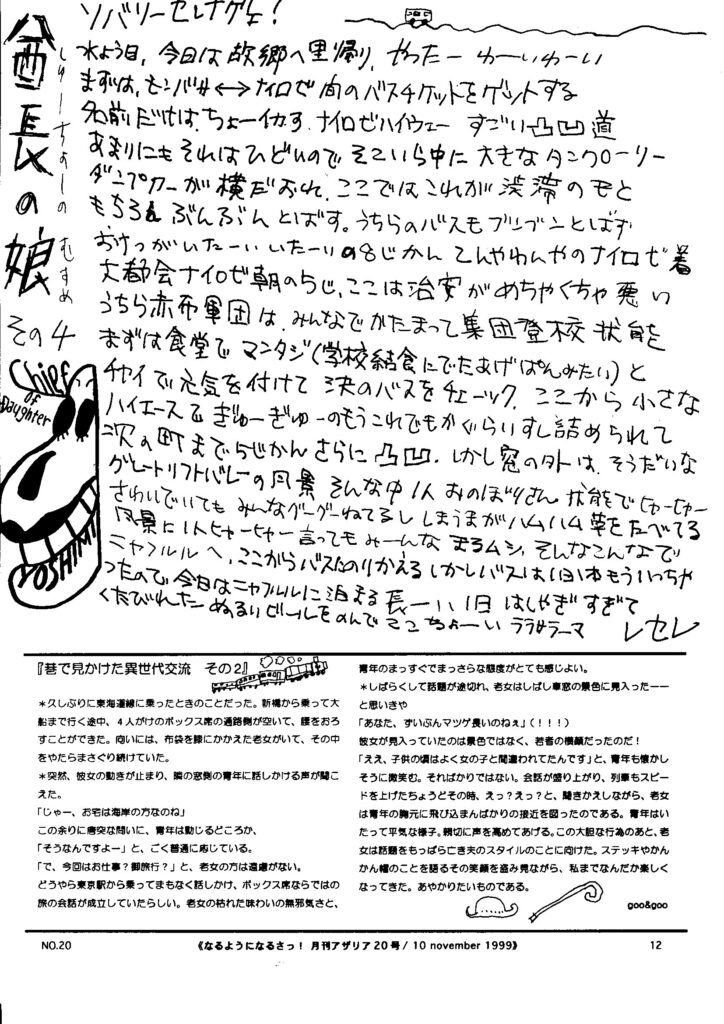 ソバリーセレナゲレ!
酋長の娘 その4
しゅーちょーの むすめ
水よう日、今日は故郷へ里帰り、やったー わーいわーい
まずは、モンバサ⟷ナイロビ間のバスチケットをゲットする
名前だけは、ちょーイカす、ナイロビハイウェー すごい凸凹道
あまりにもそれはひどいので そこいら中に大きなタンクローリー
ダンプカーが横だおれ、ここではこれが渋滞のモと
もちろん ぶんぶん とばす。うちらのバスもブンブンとばす
おけつがいたーい いたーいの8じかん てんやわんやのナイロビ着
大都会ナイロビ朝の5じ、ここは治安がめちゃくちゃ悪い
うちら赤布軍団は、みんなでかたまって集団登校状態
まずは食堂で マンダジ(学校給食にでたあげぱんみたい)と
チャイで元気を付けて 次のバスをチェーック、ここから小さな
ハイエースで ぎゅーぎゅーのもうこれでもかぐらいすし詰められて
次の町まで5じかんさらに凸凹、しかし窓の外は、そうだいな
グレートリフトバレーの風景 そんな中1人 おのぼりさん 状態でヒャーヒャー
さわいでいても みんなグーグーねてるし しまうまがハムハム草をたべてる
風景に1人ヒャーヒャー言ってもみーんな まるムシ、そんなこんなで
ニャフルルへ、ここからバスにのりかえる しかしバスは1日1本もういっちゃ
ったので、今日はニャフルルに泊まる 長ーい1日 はしゃぎすぎて
くたびれた ぬるいビールをのんで ララサラーマ レセレ
Chief of Daughter
YOSHIMI
『巷で見かけた異世代交流 その2』
*久しぶりに東海道線に乗ったときのことだった。新橋から乗って大
船まで行く途中、4人がけのボックス席の通路側が空いて、腰をおろ
すことができた。向いには、布袋を膝にかかえた老女がいて、その中
をやたらまさぐり続けていた。
*突然、彼女の動きが止まり、隣の窓側の青年に話しかける声が聞こ
えた。
「じゃー、お宅は海岸の方なのね」
この余りに唐突な問いに、青年は動じるどころか、
「そうなんですよー」と、ごく普通に応じている。
「で、今回はお仕事?御旅行?」と、老女の方は遠慮がない。
どうやら東京駅から乗ってまもなく話しかけ、ボックス席ならではの
旅の会話が成立していたらしい。老女の枯れた味わいの無邪気さと、
青年のまっすぐでまっさらな態度がとても感じよい。
*しばらくして話題が途切れ、老女はしばし車窓の景色に見入ったーー
と思いきや
「あなた、ずいぶんマツゲ長いのねぇ」(!!!)
彼女が見入っていたのは景色ではなく、若者の横顔だったのだ!
「ええ、子供の頃はよく女の子と間違われてたんです」と、青年も懐かし
そうに微笑む。そればかりではない。会話が盛り上がり、列車もスピー
ドを上げたちょうどその時、えっ?えっ?と、聞きかえしながら、老女
は青年の胸元に飛び込まんばかりの接近を図ったのである。青年はい
たって平気な様子。親切に声を高めてあげる。この大胆な行為のあと、老
女は話題をもっぱら亡き夫のスタイルのことに向けた。ステッキやかん
かん帽のことを語るその笑顔を盗み見ながら、私までなんだか楽しく
なってきた。あやかりたいものである。
goo&goo
NO.20 《なるようになるさっ! 月刊アザリア20号/10 november 1999》 12